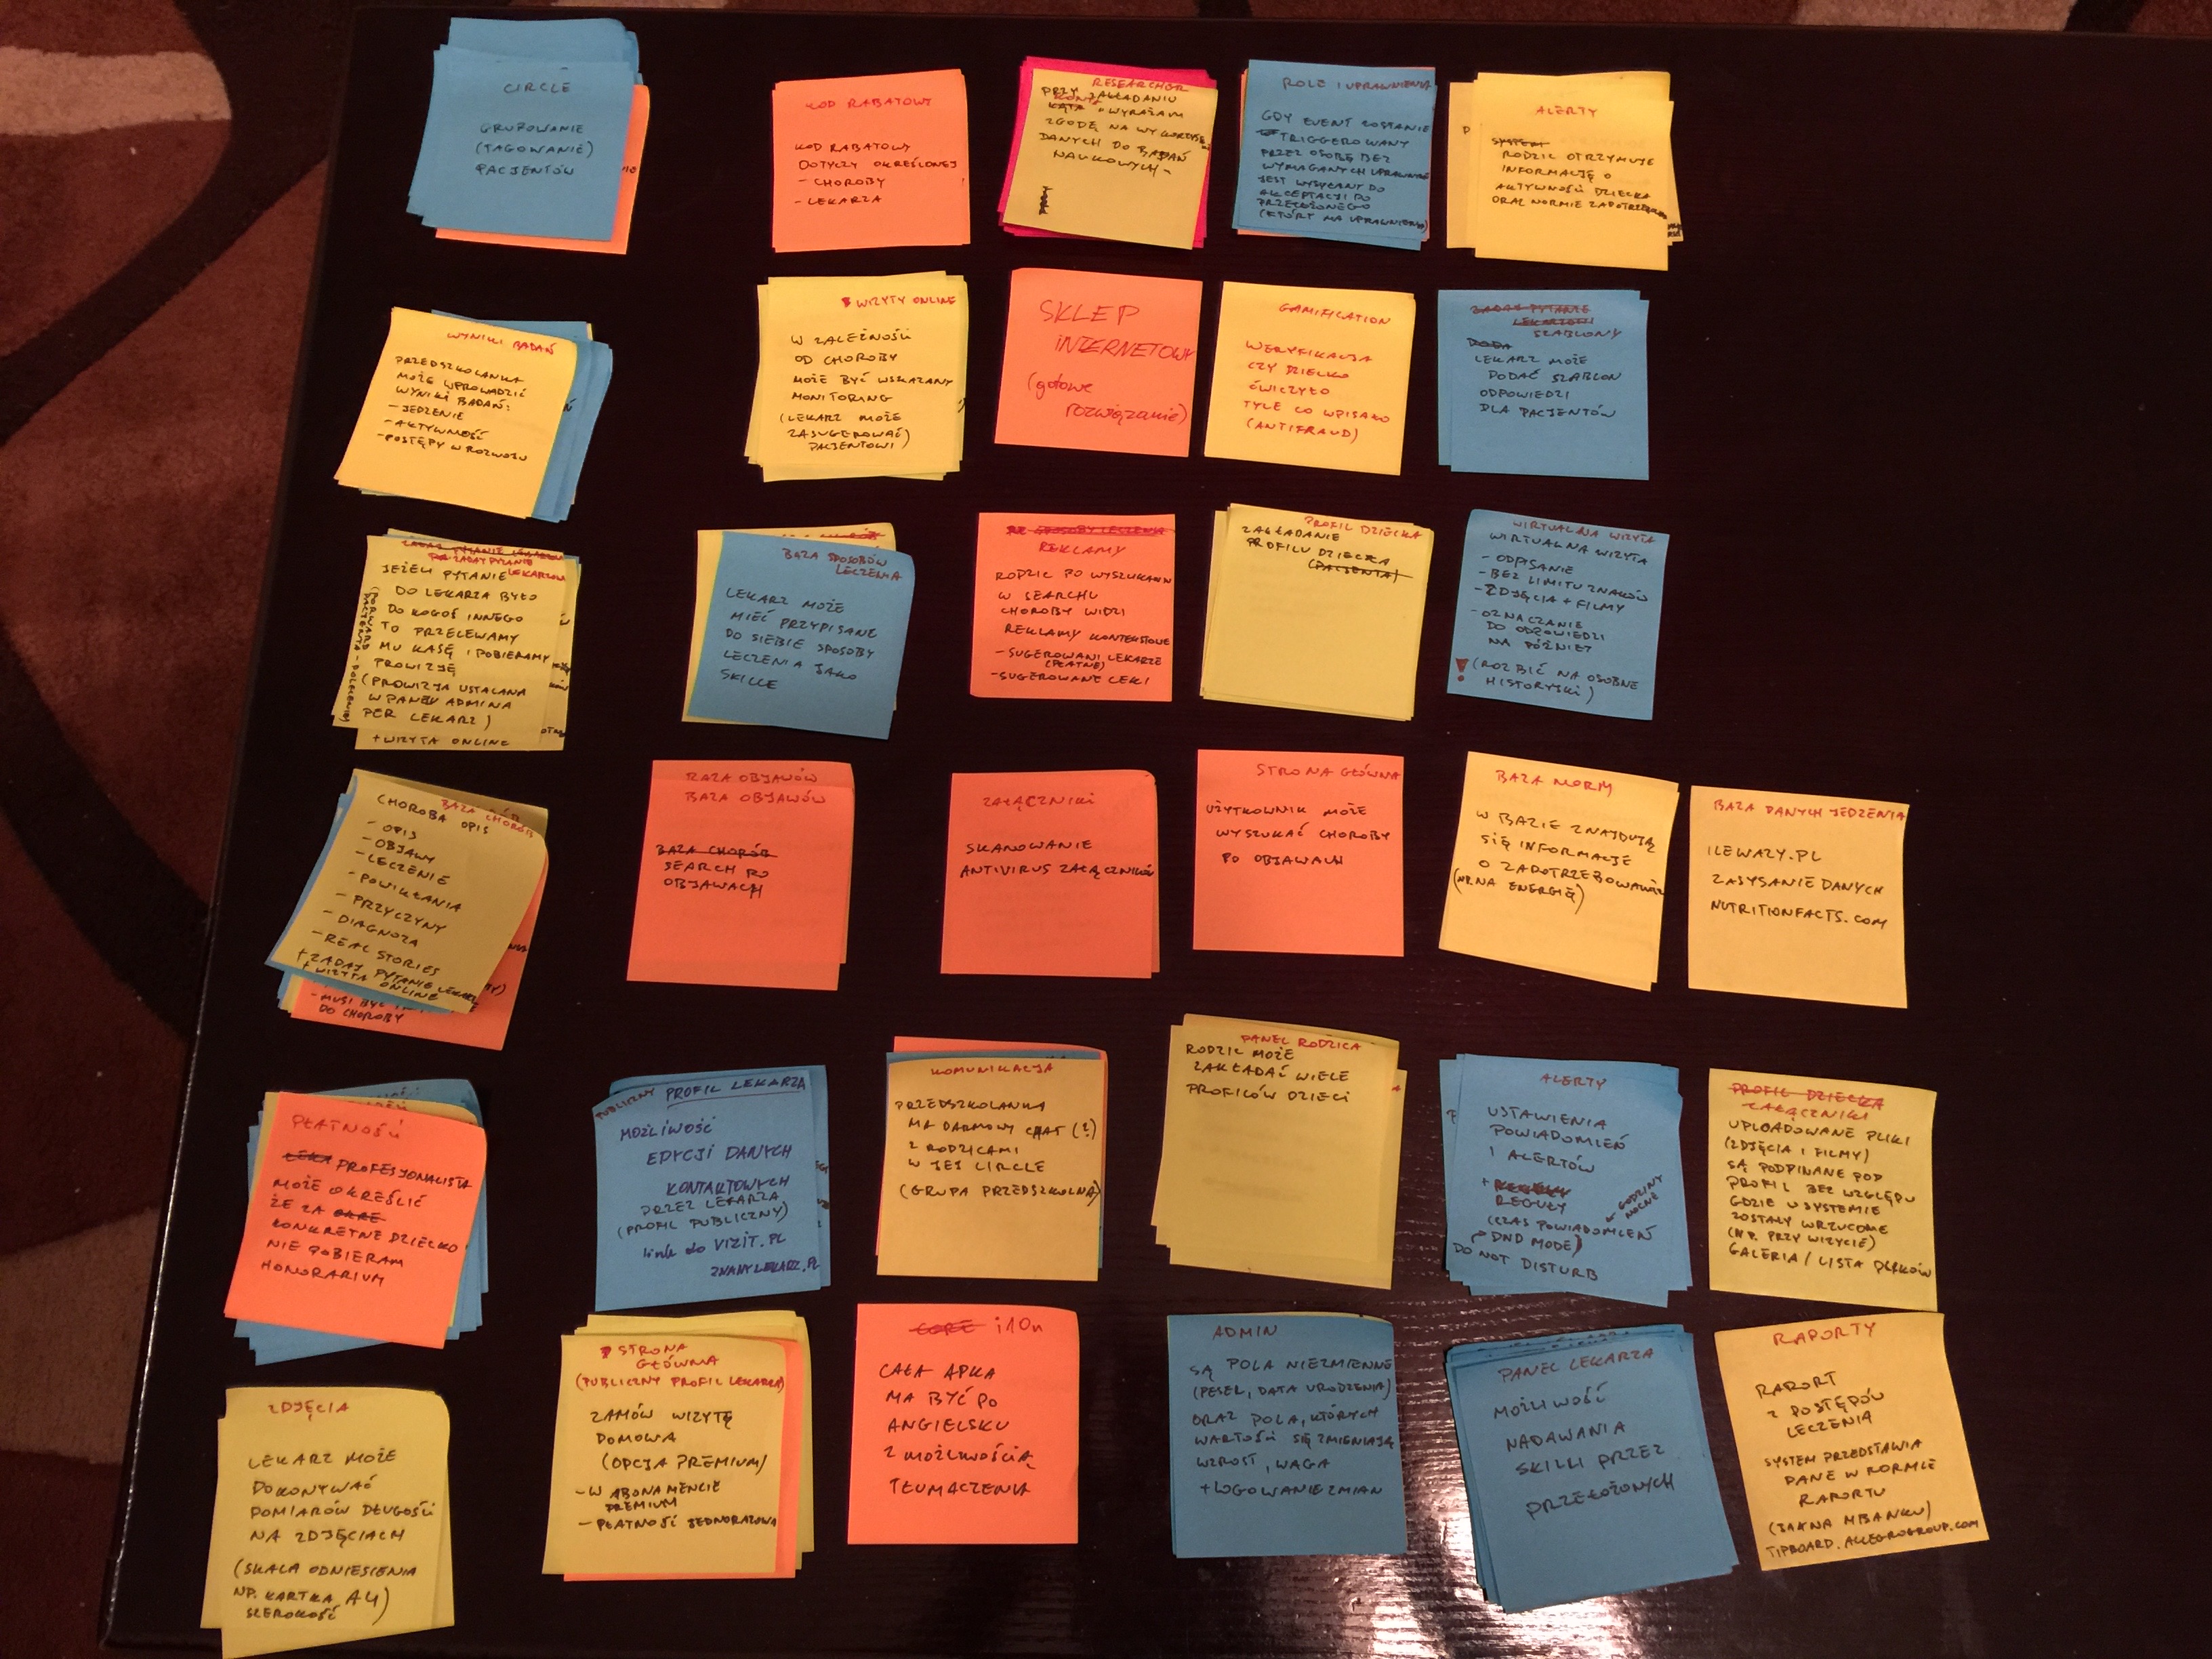 CIRCLE
GRUPOWANIE
(TAGOWANIE)
PACJENTÓW
KOD RABATOWY
KOD RABATOWY
DOTYCZY OKREŚLONEJ
- CHOROBY
- LEKARZA
RESEARCHER
PRZY ZAKŁADANIU
KONTA WYRAŻAM
ZGODĘ NA
DANYCH DO BADAŃ
NAUKOWYCH
ROLE I UPRAWNIENIA
GDY EVENT ZOSTANIE
TRIGGEROWANY
PRZEZ OSOBĘ BEZ
WYMAGANYCH UPRAWNIEŃ
JEST WYSYŁANY DO
AKCEPTACJI DO
PRZEŁOŻONEGO
(KTÓRY MA UPRAWNIENIA)
ALERTY
SYSTEM
RODZIC OTRZYMUJE
INFORMACJĘ O
AKTYWNOŚCI DZIECKA
ORAZ NORMIE
WYNIKI BADAŃ
PRZEDSZKOLANKA
MOŻE WPROWADZIĆ
WYNIKI BADAŃ:
- JEDZENIE
- AKTYWNOŚĆ
- POSTĘPY W ROZWOJU
WIZYTY ONLINE
W ZALEŻNOŚCI
OD CHOROBY
MOŻE BYĆ WSKAZANY
MONITORING
(LEKARZ MOŻE
ZASUGEROWAĆ)
PACJENTOWI)
SKLEP
INTERNETOWY
(gotowe
rozwiązanie)
GAMIFICATION
WERYFIKACJA
CZY DZIECKO
ĆWICZYŁO
TYLE CO WPISAŁO
(ANTIFRAUD)
ZADAJ PYTANIE
LEKARZOWI
SZABLONY
LEKARZ MOŻE
DODAĆ SZABLON
ODPOWIEDZI
DLA PACJENTÓW
ZADAJ PYTANIE
LEKARZOWI
JEŻELI PYTANIE
DO LEKARZA BYŁO
DO KOGOŚ INNEGO
TO PRZELEWAMY
MU KASĘ I POBIERAMY
PROWIZJĘ
(PROWIZJA USTALANA
W PANELU ADMINA
PER LEKARZ)
+ WIZYTA ONLINE
BAZA SPOSOBÓW
LECZENIA
LEKARZ MOŻE
MIEĆ PRZYPISANE
DO SIEBIE SPOSOBY
LECZENIA JAKO
SKILLE
SPOSOBY LECZENIA
REKLAMY
RODZIC PO WYSZUKANIU
W SEARCHU
CHOROBY WIDZI
REKLAMY KONTEKSTOWE
- SUGEROWANI LEKARZE
(PŁATNE)
- SUGEROWANE LEKI
PROFIL DZIECKA
ZAKŁADANIE
PROFILU DZIECKA
(PACJENTA)
WIRTUALNA WIZYTA
WIRTUALNA WIZYTA
- ODPISANIE
- BEZ LIMITU ZNAKÓW
- ZDJĘCIA + FILMY
- OZNACZANIE
DO ODPOWIEDZI
NA PÓŹNIEJ
! (ROZBIĆ NA OSOBNE
HISTORYJKI)
BAZA CHORÓB
CHOROBA OPIS
- OPIS
- OBJAWY
- LECZENIE
- POWIKŁANIA
- PRZYCZYNY
- DIAGNOZA
- REAL STORIES
+ ZADAJ PYTANIE
+ WIZYTA ONLINE
- MUSI BYĆ
DO CHOROBY
BAZA OBJAWÓW
BAZA OBJAWÓW
BAZA CHORÓB
SEARCH PO
OBJAWACH
ZAŁĄCZNIKI
SKANOWANIE
ANTIVIRUS ZAŁĄCZNIKÓW
STRONA GŁÓWNA
UŻYTKOWNIK MOŻE
WYSZUKAĆ CHOROBY
PO OBJAWACH
BAZA NORM
W BAZIE ZNAJDUJĄ
SIĘ INFORMACJE
O
ENERGIĘ)
BAZA DANYCH JEDZENIA
ILEWAZY.PL
ZASYSANIE DANYCH
NUTRITIONFACTS.COM
PŁATNOŚCI
PROFESJONALISTA
MOŻE OKREŚLIĆ
ŻE ZA
KONKRETNE DZIECKO
NIE POBIERAM
HONORARIUM
PUBLICZNY PROFIL LEKARZA
MOŻLIWOŚĆ
EDYCJI DANYCH
KONTAKTOWYCH
PRZEZ LEKARZA
(PROFIL PUBLICZNY)
link do VIZIT.PL
ZNANYLEKARZ.PL
KOMUNIKACJA
PRZEDSZKOLANKA
MA DARMOWY CHAT (?)
Z RODZICAMI
W JEJ CIRCLE
(GRUPA PRZEDSZKOLNA)
PANEL RODZICA
RODZIC MOŻE
ZAKŁADAĆ WIELE
PROFILÓW DZIECI
ALERTY
USTAWIENIA
POWIADOMIEŃ
I ALERTÓW
+ REGUŁY
REGUŁY
(CZAS POWIADOMIEŃ
GODZINY
NOCNE
DND MODE)
DO NOT DISTURB
PROFIL DZIECKA
ZAŁĄCZNIKI
UPLOADOWANE PLIKI
(ZDJĘCIA I FILMY)
SĄ PODPINANE POD
PROFIL BEZ WZGLĘDU
GDZIE W SYSTEMIE
ZOSTAŁY WRZUCONE
(NP. PRZY WIZYCIE)
GALERIA / LISTA PLIKÓW
ZDJĘCIA
LEKARZ MOŻE
DOKONYWAĆ
POMIARÓW DŁUGOŚCI
NA ZDJĘCIACH
(SKALA ODNIESIENIA
NP. KARTKA A4)
SZEROKOŚĆ
STRONA
GŁÓWNA
(PUBLICZNY PROFIL LEKARZA)
ZAMÓW WIZYTĘ
DOMOWĄ
(OPCJA PREMIUM)
- W ABONAMENCIE
PREMIUM
- PŁATNOŚĆ JEDNORAZOWA
CORE i10n
CAŁA APKA
MA BYĆ PO
ANGIELSKU
Z MOŻLIWOŚCIĄ
TŁUMACZENIA
ADMIN
SĄ POLA NIEZMIENNE
(PESEL, DATA URODZENIA)
ORAZ POLA, KTÓRYCH
WARTOŚCI SIĘ ZMIENIAJĄ
WZROST, WAGA
+ LOGOWANIE ZMIAN
PANEL LEKARZA
MOŻLIWOŚĆ
NADAWANIA
SKILLI PRZEZ
PRZEŁOŻONYCH
RAPORTY
RAPORT
Z POSTĘPÓW
LECZENIA
SYSTEM PRZEDSTAWIA
DANE W FORMIE
RAPORTU
(JAK NA MBANKU)
TIPBOARD.ALLEGROGROUP.COM